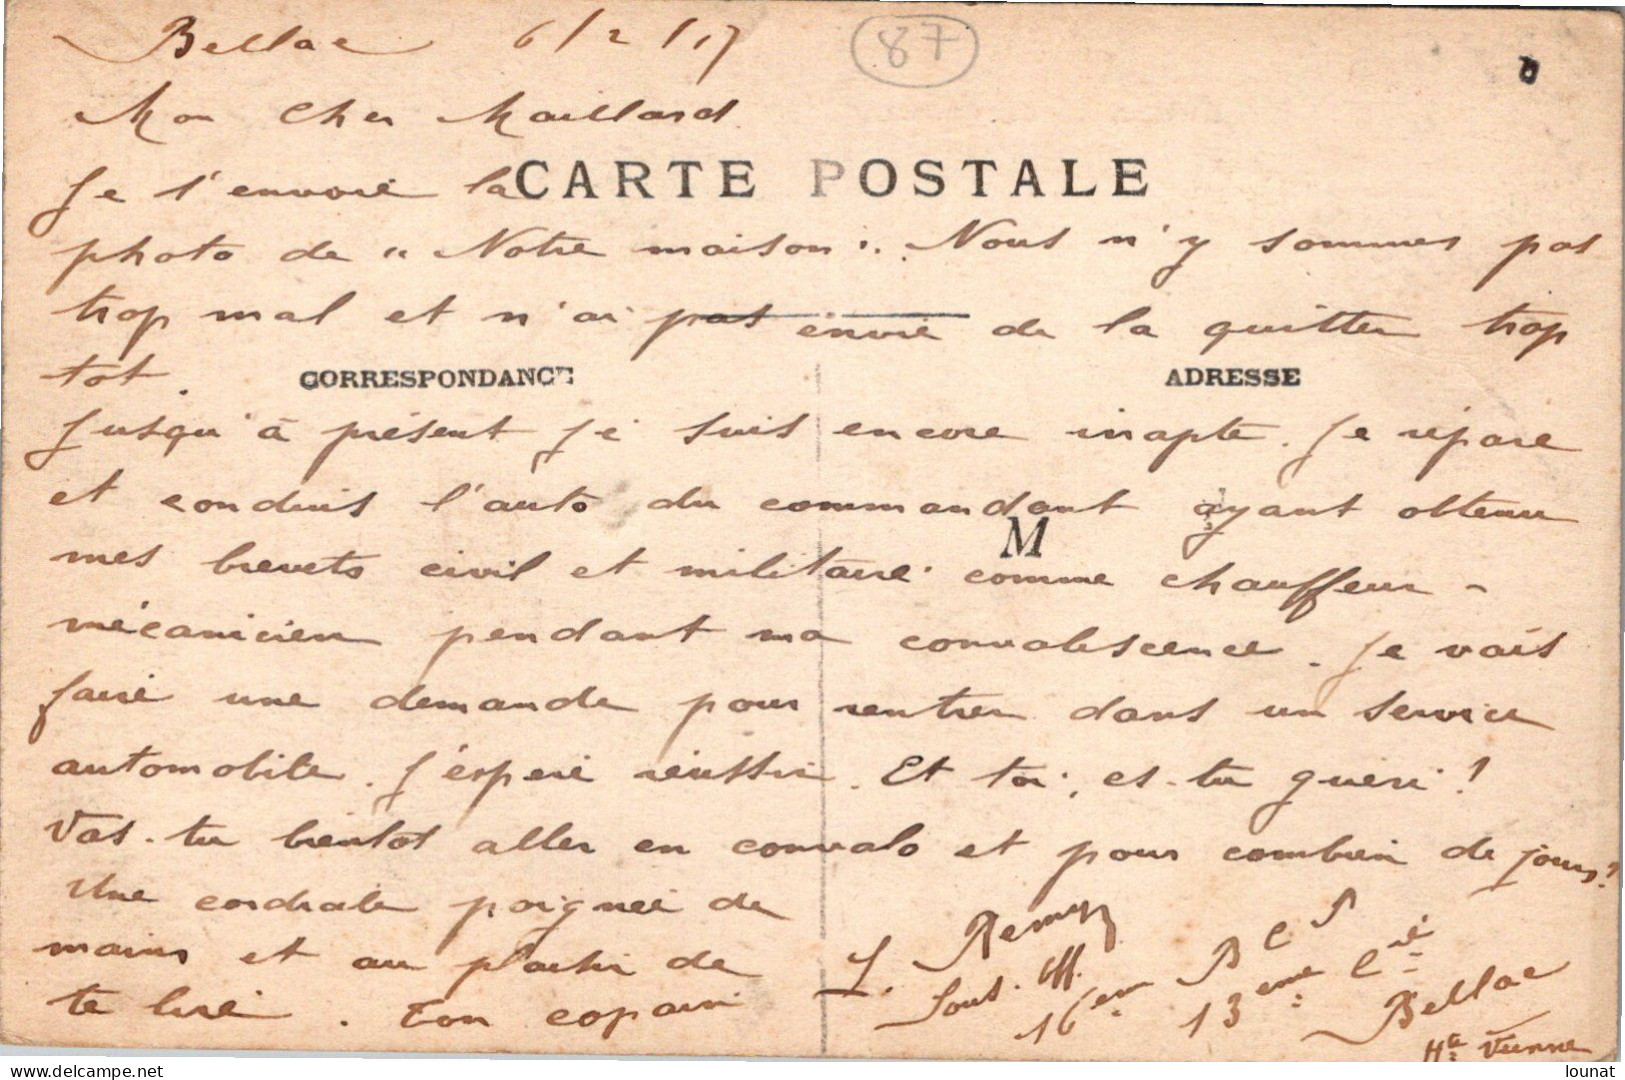 Bellac 6/2/17
87
Mon Cher Maillard
Je t'envoie la
CARTE POSTALE
photo de " Notre maison ". Nous n'y sommes pas
trop mal et n'ai pas envie de la quitter trop
tôt.
CORRESPONDANCE
ADRESSE
Jusqu'à présent je suis encore inapte. Je répare
et conduis l'auto du commandant ayant obtenu
M
mes brevets civil et militaire comme chauffeur -
mécanicien pendant ma convalescence. Je vais
faire une demande pour rentrer dans un service
automobile. J'espère réussir. Et toi, es-tu guéri ?
Vas-tu bientôt aller en convalo et pour combien de jours ?
Une cordiale poignée de
mains et au plaisir de
te lire. Ton copain
L. Remy
Sous-Off.
16ème B C P
13ème Cie
Bellac
Hte Vienne
lounat